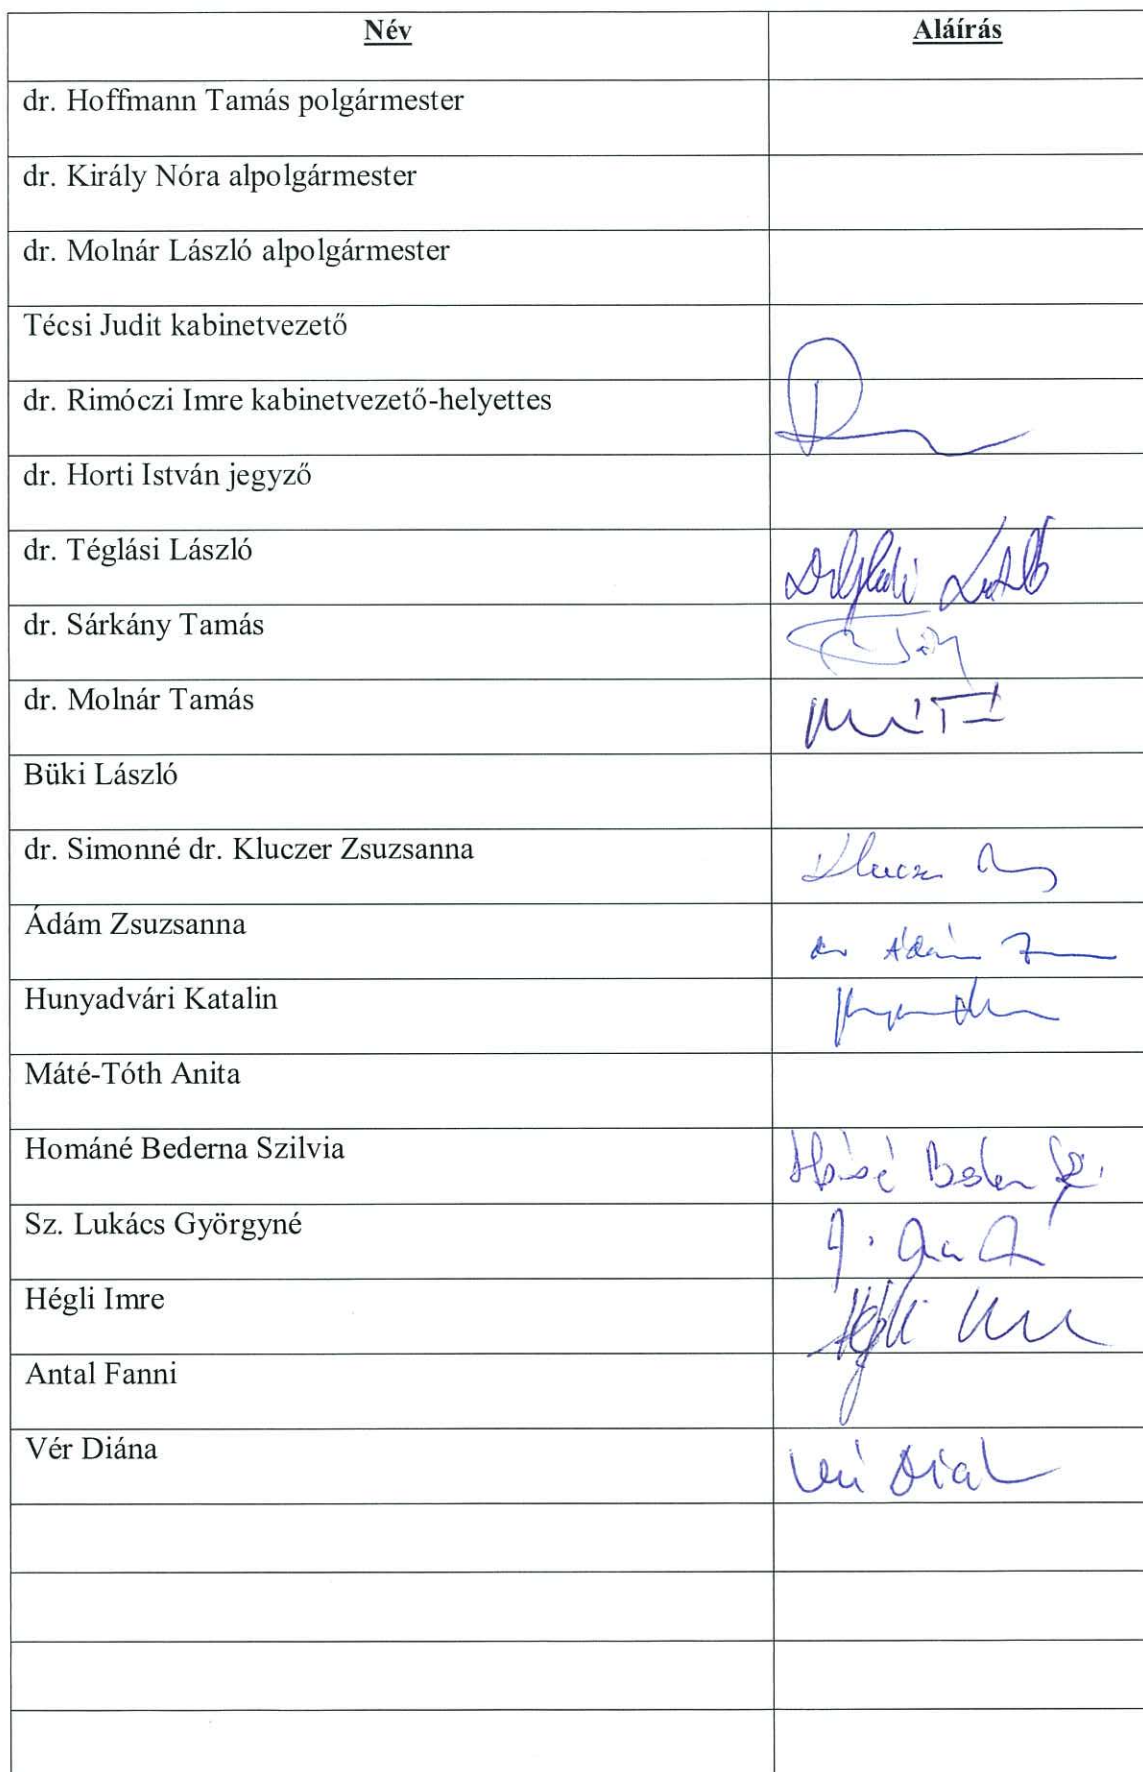 Név Aláírás
dr. Hoffmann Tamás polgármester
dr. Király Nóra alpolgármester
dr. Molnár László alpolgármester
Técsi Judit kabinetvezető
dr. Rimóczi Imre kabinetvezető-helyettes
dr. Horti István jegyző
dr. Téglási László
dr. Sárkány Tamás
dr. Molnár Tamás
Büki László
dr. Simonné dr. Kluczer Zsuzsanna
Ádám Zsuzsanna dr Ádám
Hunyadvári Katalin
Máté-Tóth Anita
Hománé Bederna Szilvia
Sz. Lukács Györgyné
Hégli Imre
Antal Fanni
Vér Diána